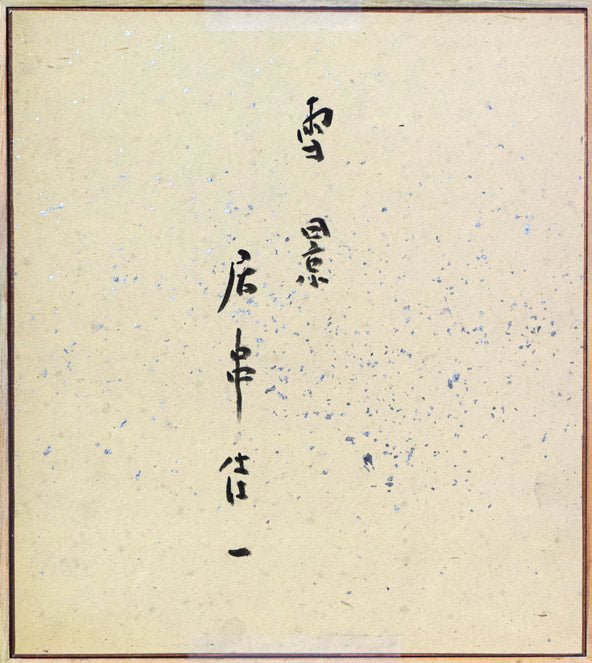 雪景
居串佳一